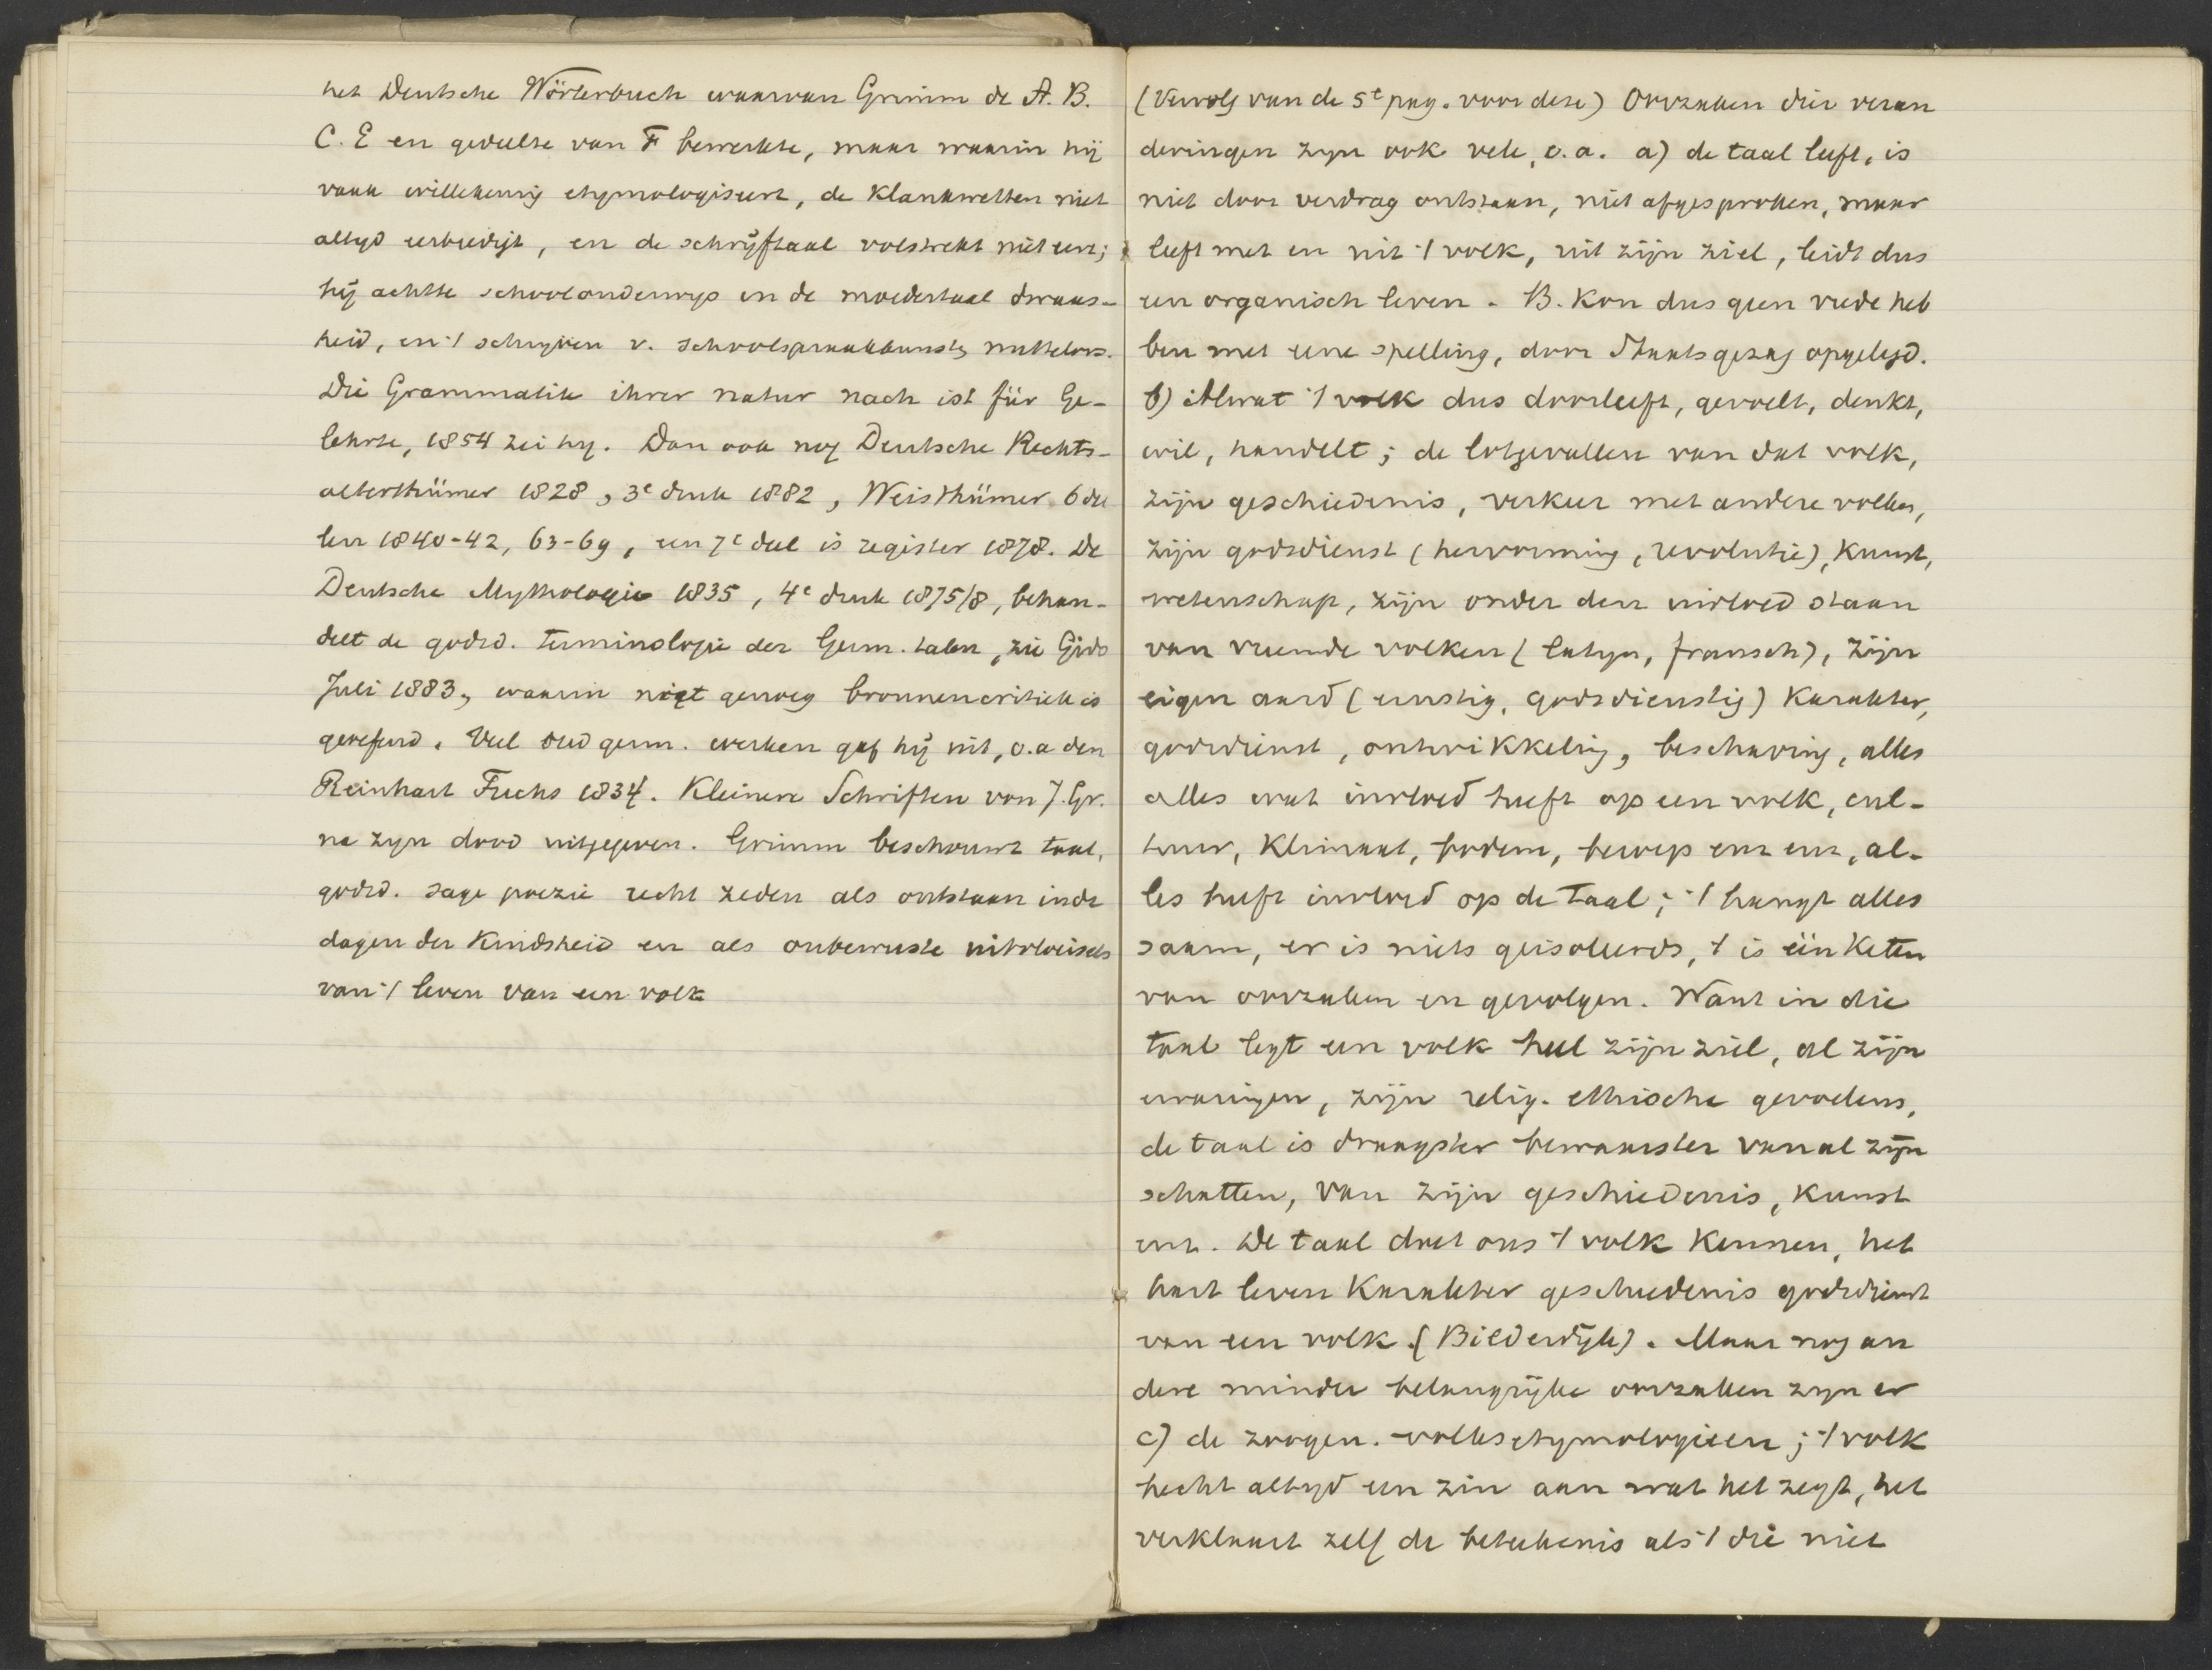 het Deutsche Wörterbuch waarvan Grimm de A. B.
C. E en gedeelte van F bewerkte, maar waarin hij
vaak willekeurig etymologiseert, de klankwetten niet
altyd eerbiedigt, en de schrijftaal volstrekt niet eert;
hij achtte schoolonderwijs in de moedertaal dwaas-
heid, en 't schryven v. schoolspraakkunsten nutteloos.
Die Grammatik ihrer natur nach ist für Ge-
lehrte, 1854 zei hy. Dan ook nog Deutsche Rechts-
alterthümer 1828, 3e druk 1882, Weisthümer 6 dee
len 1840-42, 63-69, een 7e deel is register 1878. De
Deutsche Mythologie 1835, 4e druk 1875/8, behan-
delt de godsd. terminologie der Germ. talen, zie Gids
Juli 1883, waarin niet genoeg bronnencritiek is
geoefend. Veel oud germ. werken gaf hij uit, o.a den
Reinhart Fuchs 1834. Kleinere Schriften van J. Gr.
na zyn dood uitgegeven. Grimm beschouwt taal,
godsd. sage poezie recht zeden als ontstaan in de
dagen der Kindsheid en als onbewuste uitvloeisels
van 't leven van een volk
(Vervolg van de 5e pag. voor deze) Oorzaken dier veran
deringen zyn ook vele, o.a. a) de taal leeft, is
niet door verdrag ontstaan, niet afgesproken, maar
leeft met en uit 't volk, uit zijn ziel, leidt dus
een organisch leven. B. kon dus geen vrede heb
ben met eene spelling, door Staatsgezag opgelegd.
b) Alwat 't volk dus doorleeft, gevoelt, denkt,
wil, handelt; de lotgevallen van dat volk,
zijn geschiedenis, verkeer met andere volken,
zijn godsdienst (hervorming, revolutie), kunst,
wetenschap, zijn onder den invloed staan
van vreemde volken (latyn, fransch), zijn
eigen aard (ernstig, godsdienstig) karakter,
godsdienst, ontwikkeling, beschaving, alles
alles wat invloed heeft op een volk, cul-
tuur, klimaat, bodem, beroep enz enz, al-
les heeft invloed op de taal; 't hangt alles
saam, er is niets geisoleerds, 't is één keten
van oorzaken en gevolgen. Want in die
taal legt een volk heel zijn ziel, al zijn
ervaringen, zijn relig. ethische gevoelens,
de taal is draagster bewaarster van al zijn
schatten, van zijn geschiedenis, kunst
enz. De taal doet ons 't volk kennen, het
hart leven karakter geschiedenis godsdienst
van een volk (Bilderdijk). Maar nog an
dere minder belangrijke oorzaken zyn er
c) de zoogen. volksetymologieen; 't volk
hecht altyd een zin aan wat het zegt, het
verklaart zelf de beteekenis als 't die niet